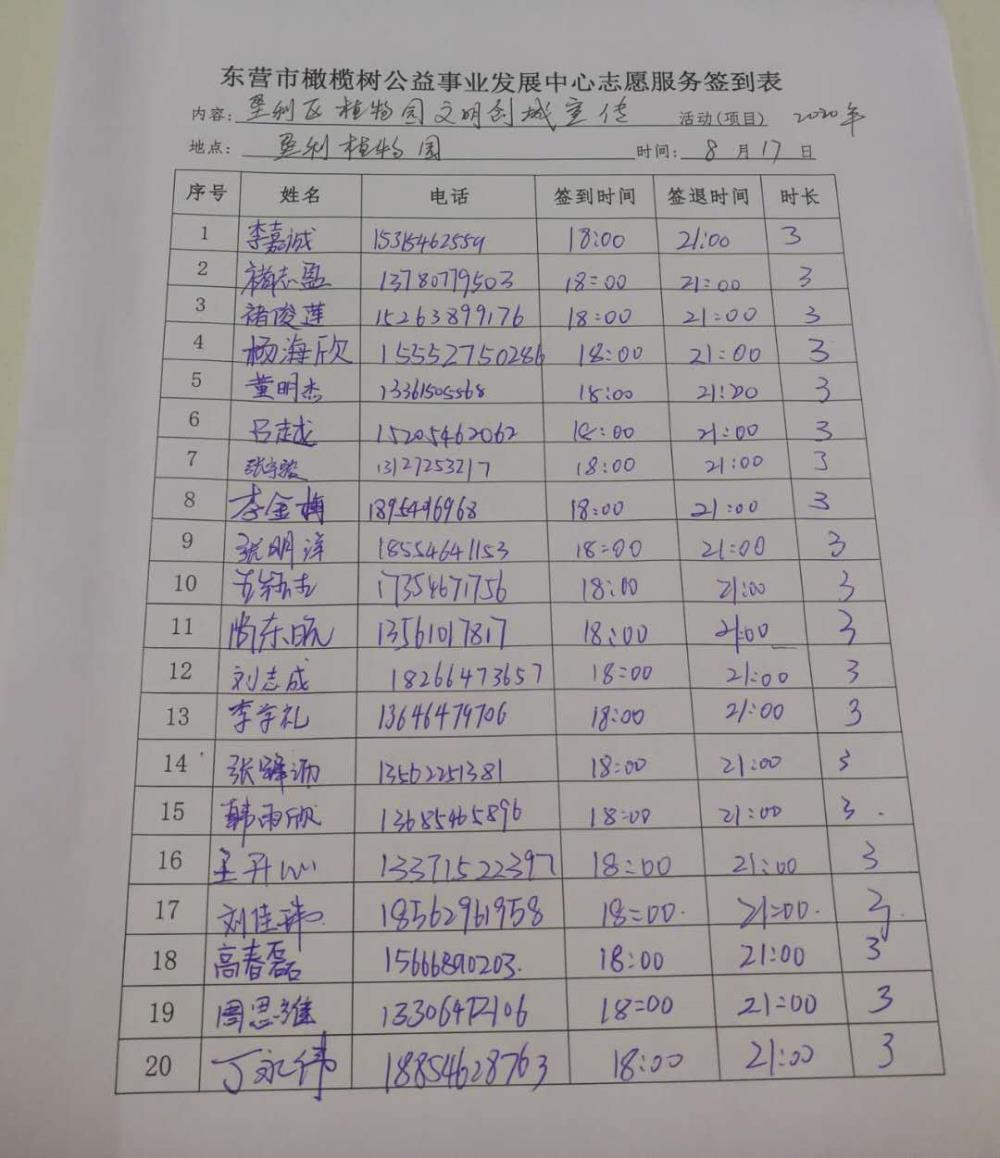 东营市橄榄树公益事业发展中心志愿服务签到表
内容: 垦利区植物园文明创城宣传 活动(项目) 2020年
地点: 垦利植物园 时间: 8月17日
序号 姓名 电话 签到时间 签退时间 时长
1 李嘉诚 15315462559 18:00 21:00 3
2 褚志盈 13780779503 18:00 21:00 3
3 褚俊莲 15263899176 18:00 21:00 3
4 杨海欣 15552750286 18:00 21:00 3
5 董明杰 13361505568 18:00 21:00 3
6 吕越 15205462062 18:00 21:00 3
7 张宇骏 13127253217 18:00 21:00 3
8 李金梅 18:00 21:00 3
9 张明洋 18554641153 18:00 21:00 3
10 17354671756 18:00 21:00 3
11 尚东帆 13561017817 18:00 21:00 3
12 刘志成 18266473657 18:00 21:00 3
13 李学礼 13646479706 18:00 21:00 3
14 13562251381 18:00 21:00 3
15 韩雨欣 13685465896 18:00 21:00 3
16 王开心 13371522397 18:00 21:00 3
17 刘佳玮 18562961958 18:00 21:00 3
18 高春磊 15666890203 18:00 21:00 3
19 周思维 13306472106 18:00 21:00 3
20 丁永纬 18854628763 18:00 21:00 3